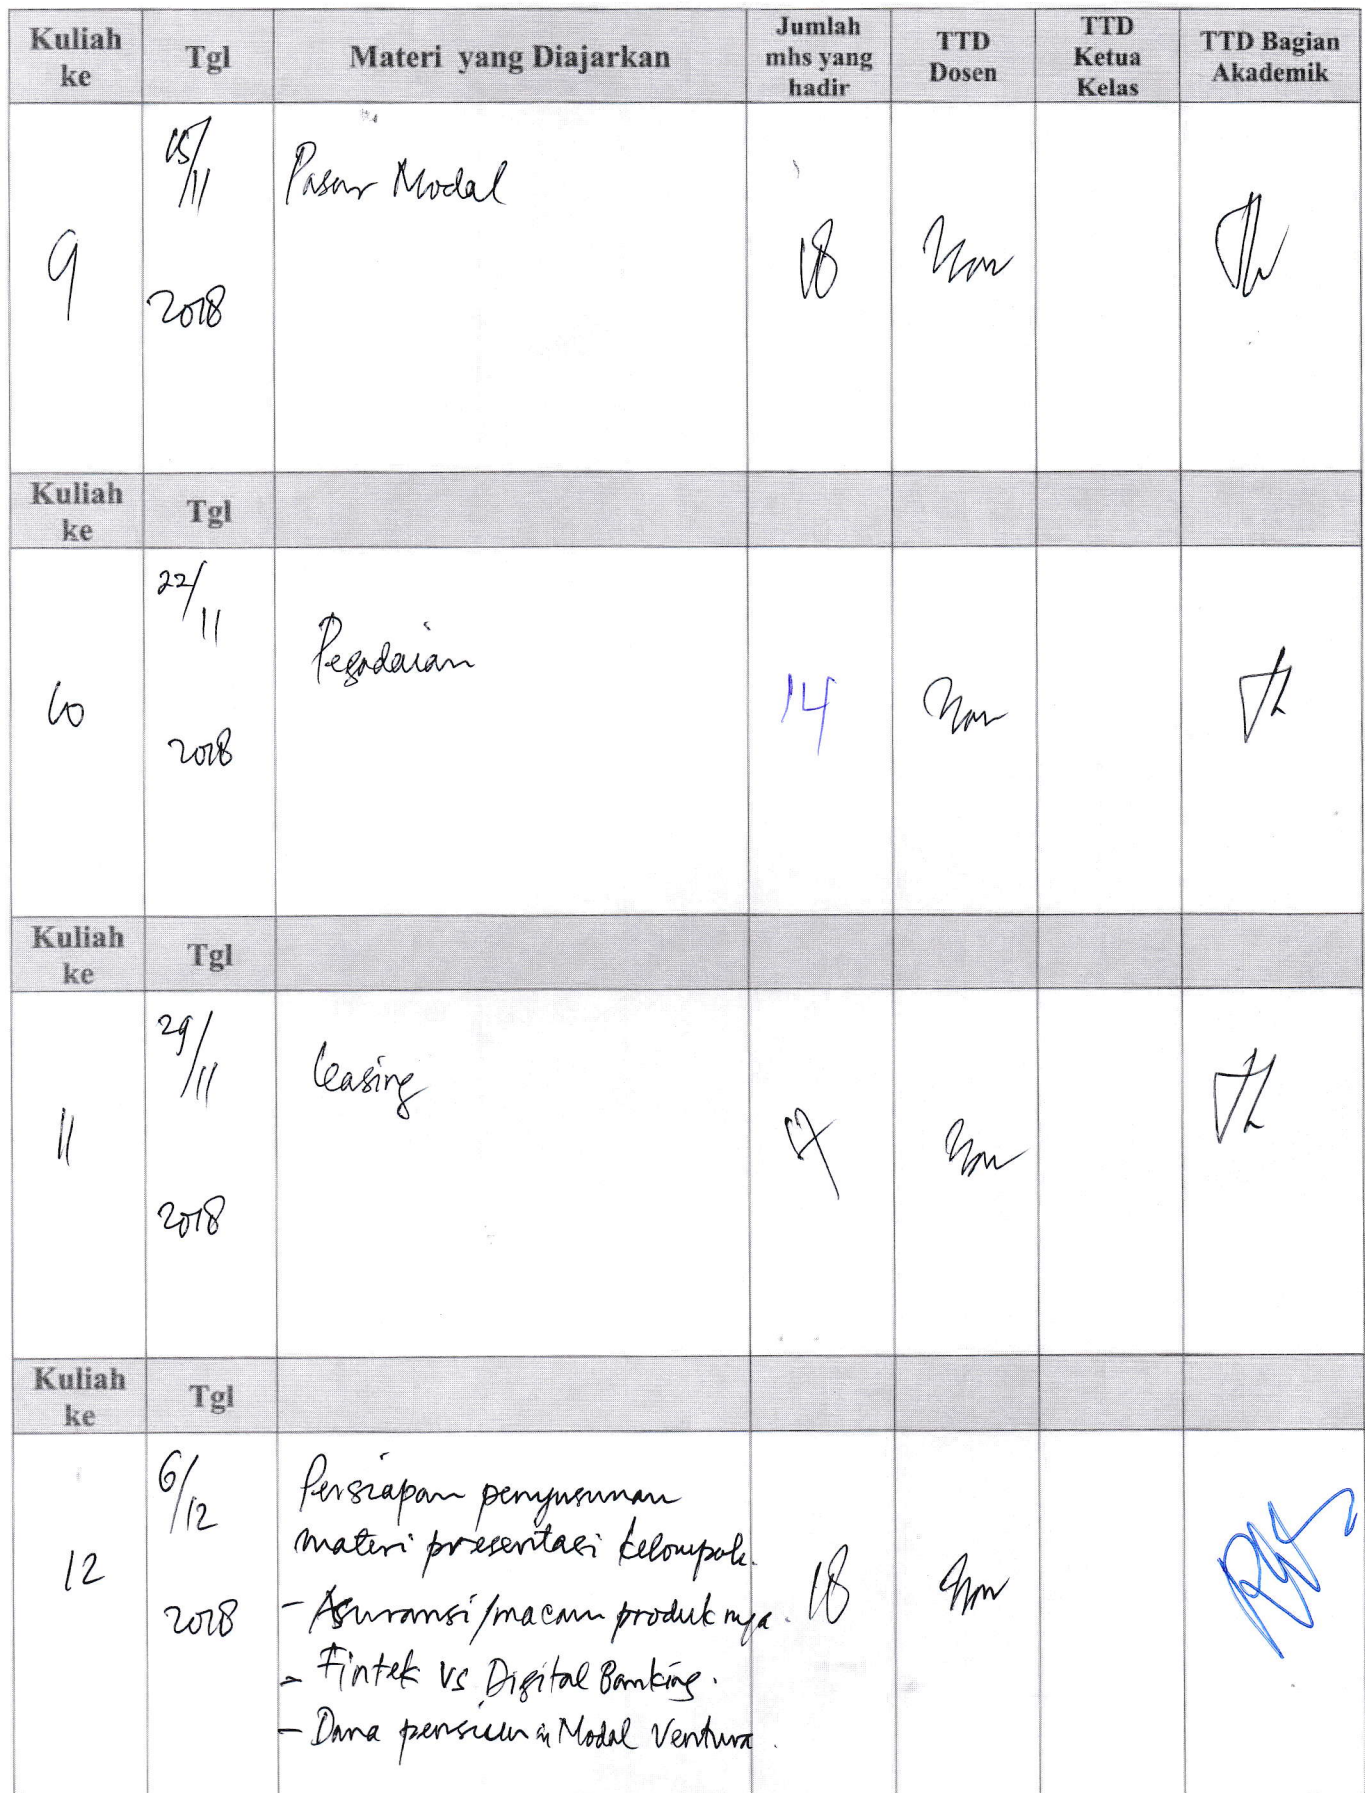 Kuliah ke Tgl Materi yang Diajarkan Jumlah mhs yang hadir TTD Dosen TTD Ketua Kelas TTD Bagian Akademik
15/11
Pasar Modal
9
18
2018
Kuliah ke Tgl
22/11
Pegadaian
10
14
2018
Kuliah ke Tgl
29/11
Leasing
11
17
2018
Kuliah ke Tgl
6/12
Persiapan penyusunan
materi presentasi kelompok.
12
18
2018
- Asuransi/macam produknya.
- Fintek vs Digital Banking.
- Dana pensiun & Modal Ventura.